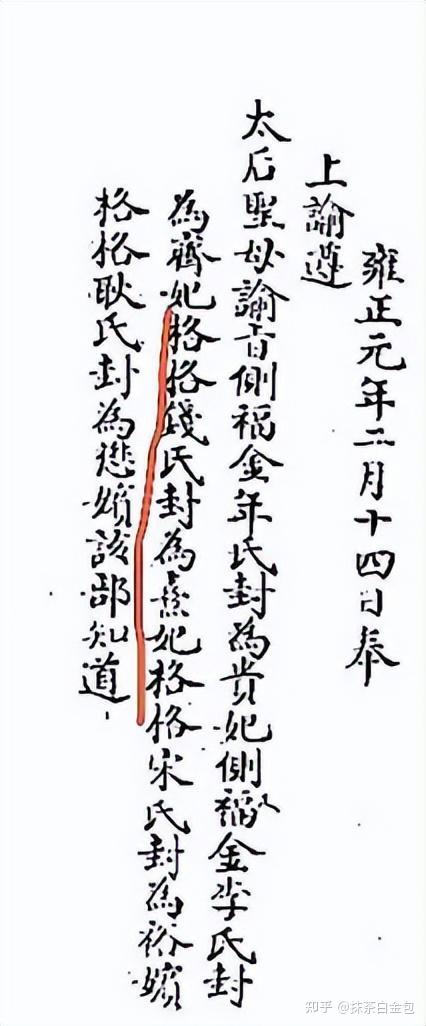 雍正元年二月十四日奉
上諭遵
太后聖母諭旨側福金年氏封為貴妃側福金李氏封
為齊妃格格錢氏封為熹妃格格宋氏封為裕嬪
格格耿氏封為懋嬪該部知道
知乎 @抹茶白金包